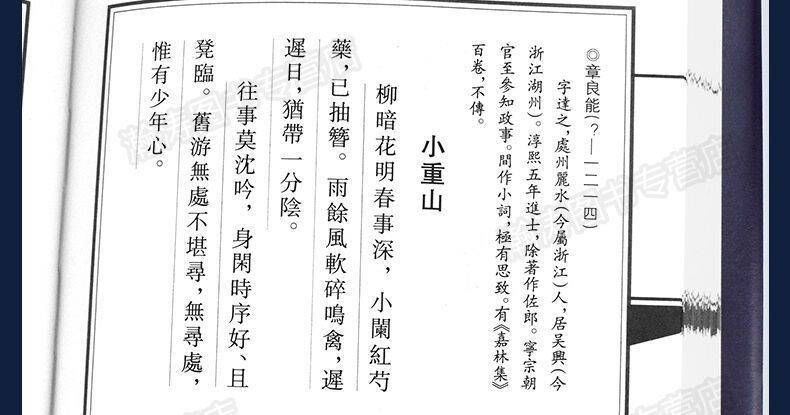 ◎章良能(？—一二一四)
字達之，處州麗水(今屬浙江)人，居吴興(今
浙江湖州)。淳熙五年進士，除著作佐郎。寧宗朝
官至參知政事。間作小詞，極有思致。有《嘉林集》
百卷，不傳。
小重山
柳暗花明春事深，小闌紅芍
藥，已抽簪。雨餘風軟碎鳴禽，遲
遲日，猶帶一分陰。
往事莫沈吟，身閑時序好、且
凳臨。舊游無處不堪尋，無尋處，
惟有少年心。